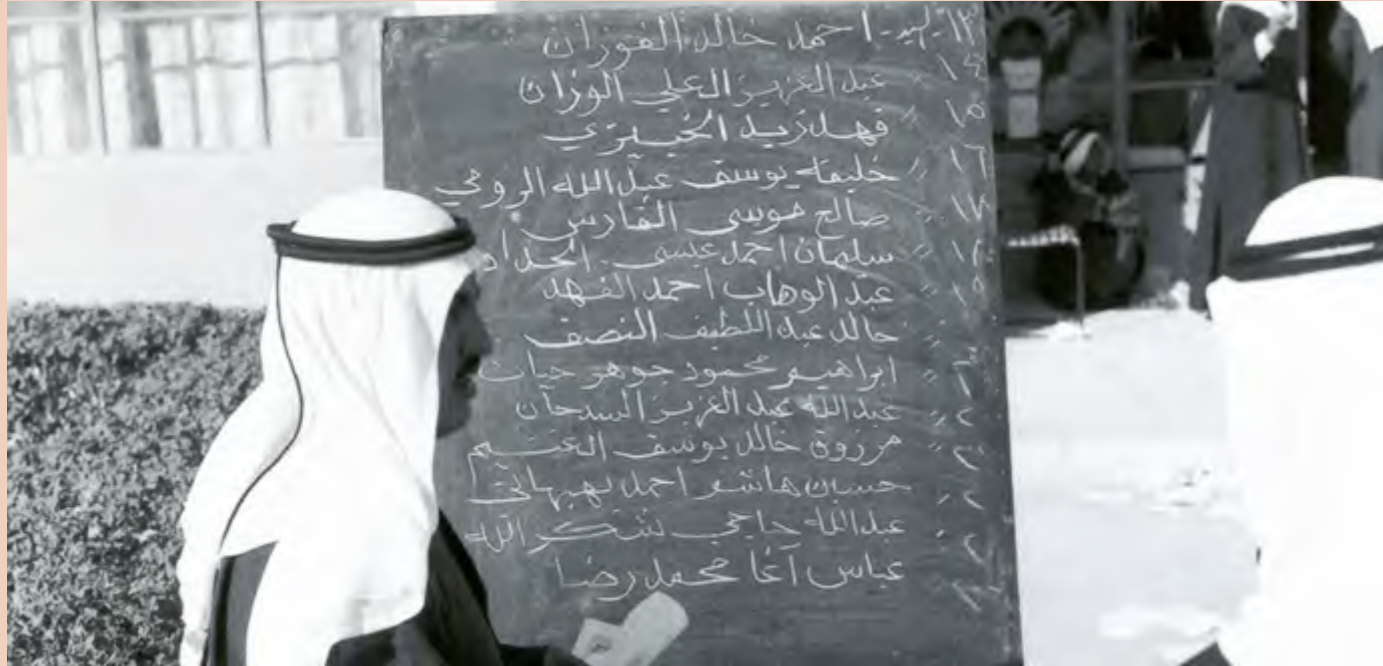 ١٣ - السيد - احمد خالد الفوزان
١٤ " عبد العزيز العلي الوزان
١٥ " فهد زيد الخبيزي
١٦ " خليفه يوسف عبدالله الرومي
١٧ " صالح موسى الفارس
١٨ " سلمان احمد عيسى الحداد
١٩ " عبد الوهاب احمد الفهد
" خالد عبد اللطيف النصف
" ابراهيم محمود جوهر حيات
" عبدالله عبد العزيز السدحان
" مرزوق خالد يوسف الغنيم
" حسين هاشم احمد بهبهاني
" عبدالله حاجي شكر الله
عباس آغا محمد رضا